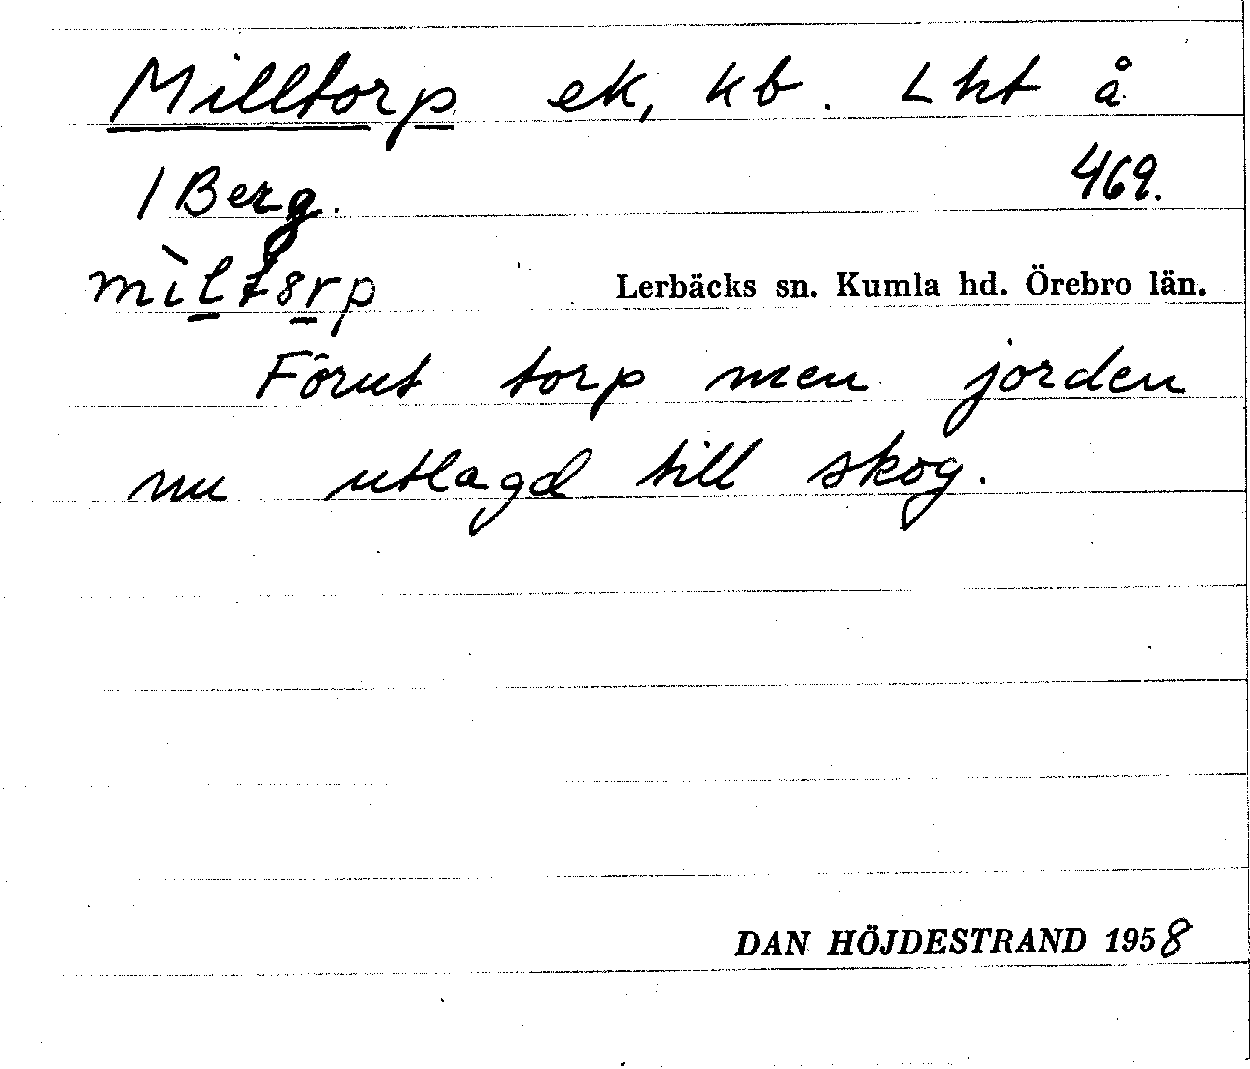 Milltorp ek, kb. Lht å
1 Berg. 469.
mìltɷrp Lerbäcks sn. Kumla hd. Örebro län.
Förut torp men jorden
nu utlagd till skog.
DAN HÖJDESTRAND 1958